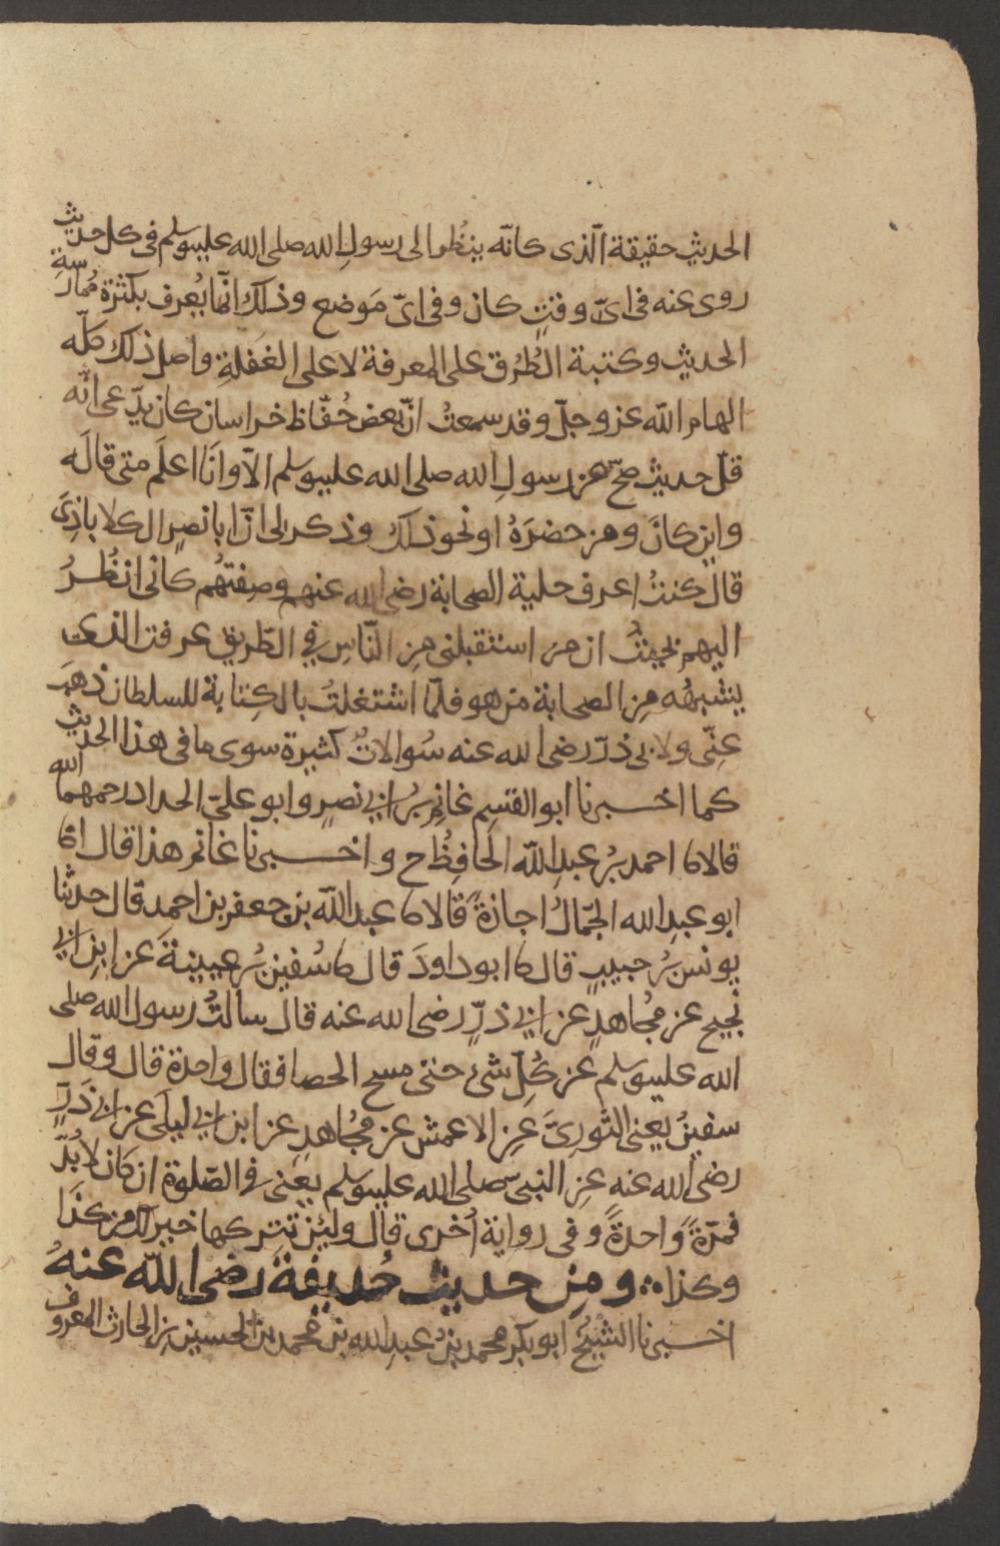 الحديث حقيقة الّذى كانّه ينظُر الى رسولِ الله صلى الله عليه وسلم فى كل حديث
روى عنه فى اىّ وقتٍ كان وفى اىّ مَوضع وذلك انّما يُعرف بكثرة مُمارسةِ
الحديث وكتبة الطُرُق على المعرفة لا على الغَفلةِ واصل ذلك كلّه
الهام الله عز وجلّ وقد سمعتُ انّ بعض حُفّاظ خراسان كان يدّعى انّه
قلّ حديث صَحّ عن رسولِ الله صلى الله عليه وسلم الّا وانَا اعلَم متى قالَه
واين كانَ ومن حضرَهُ او نحو ذلك وذكر لى انّ ابا نصرٍ الكلاباذِىَ
قالَ كنتُ اعرف حلية الصحابة رضى الله عنهم وصِفتهُم كانى انظُرُ
اليهم بحيثُ ان من استقبلنى مِن النّاسِ فِي الطّريقِ عرفت الذى
يشبهُه مِن الصحابة من هو فلمّا اشتغلتُ بالكِتابة للسلطان ذهبَ
عنّى ولابى ذرّ رضى الله عنه سُوالاتٌ كثيرة سوى ما فى هذا الحديث
كما اخبرنا ابو القسِم غانِم بنُ ابى نصرٍ وابو علىّ الحداد رحمهما الله
قالا نا احمد بنُ عبدِ الله الحَافِظُ ح واخبرنا غانم هذا قال انا
ابو عبدِ الله الجَمالُ اجازةً قالا نا عبد الله بن جعفر بن احمد قال حدثنا
يونس بنُ حبيبٍ قال نا ابو داودَ قال نا سُفين بنُ عيينةَ عن ابنِ ابى
نجيح عن مُجاهدٍ عن ابى ذرٍّ رضى الله عنه قال سالتُ رسول الله صلى
الله عليه وسلم عن كُلِّ شئ حتى مسح الحصا فقال واحدة قال وقال
سفينُ يعنى الثورِىَّ عنِ الاعمش عن مُجاهدٍ عن ابن ابى ليلَى عن ابى ذَرٍّ
رضى الله عنه عنِ النبى صلى الله عليه وسلم يعنى فى الصّلوة ان كَان لا بُدّ
فمرّةً واحدةً وفى رواية اُخرى قال ولئِن تتركها خير لك من كذَا
وكذا ∴ ومِن حديث حُذيفة رضى الله عنهُ
اخبرنا الشيخُ ابو بكر محمد بنُ عبدِ الله بن محمد بن الحسين بن الحارث المعروف